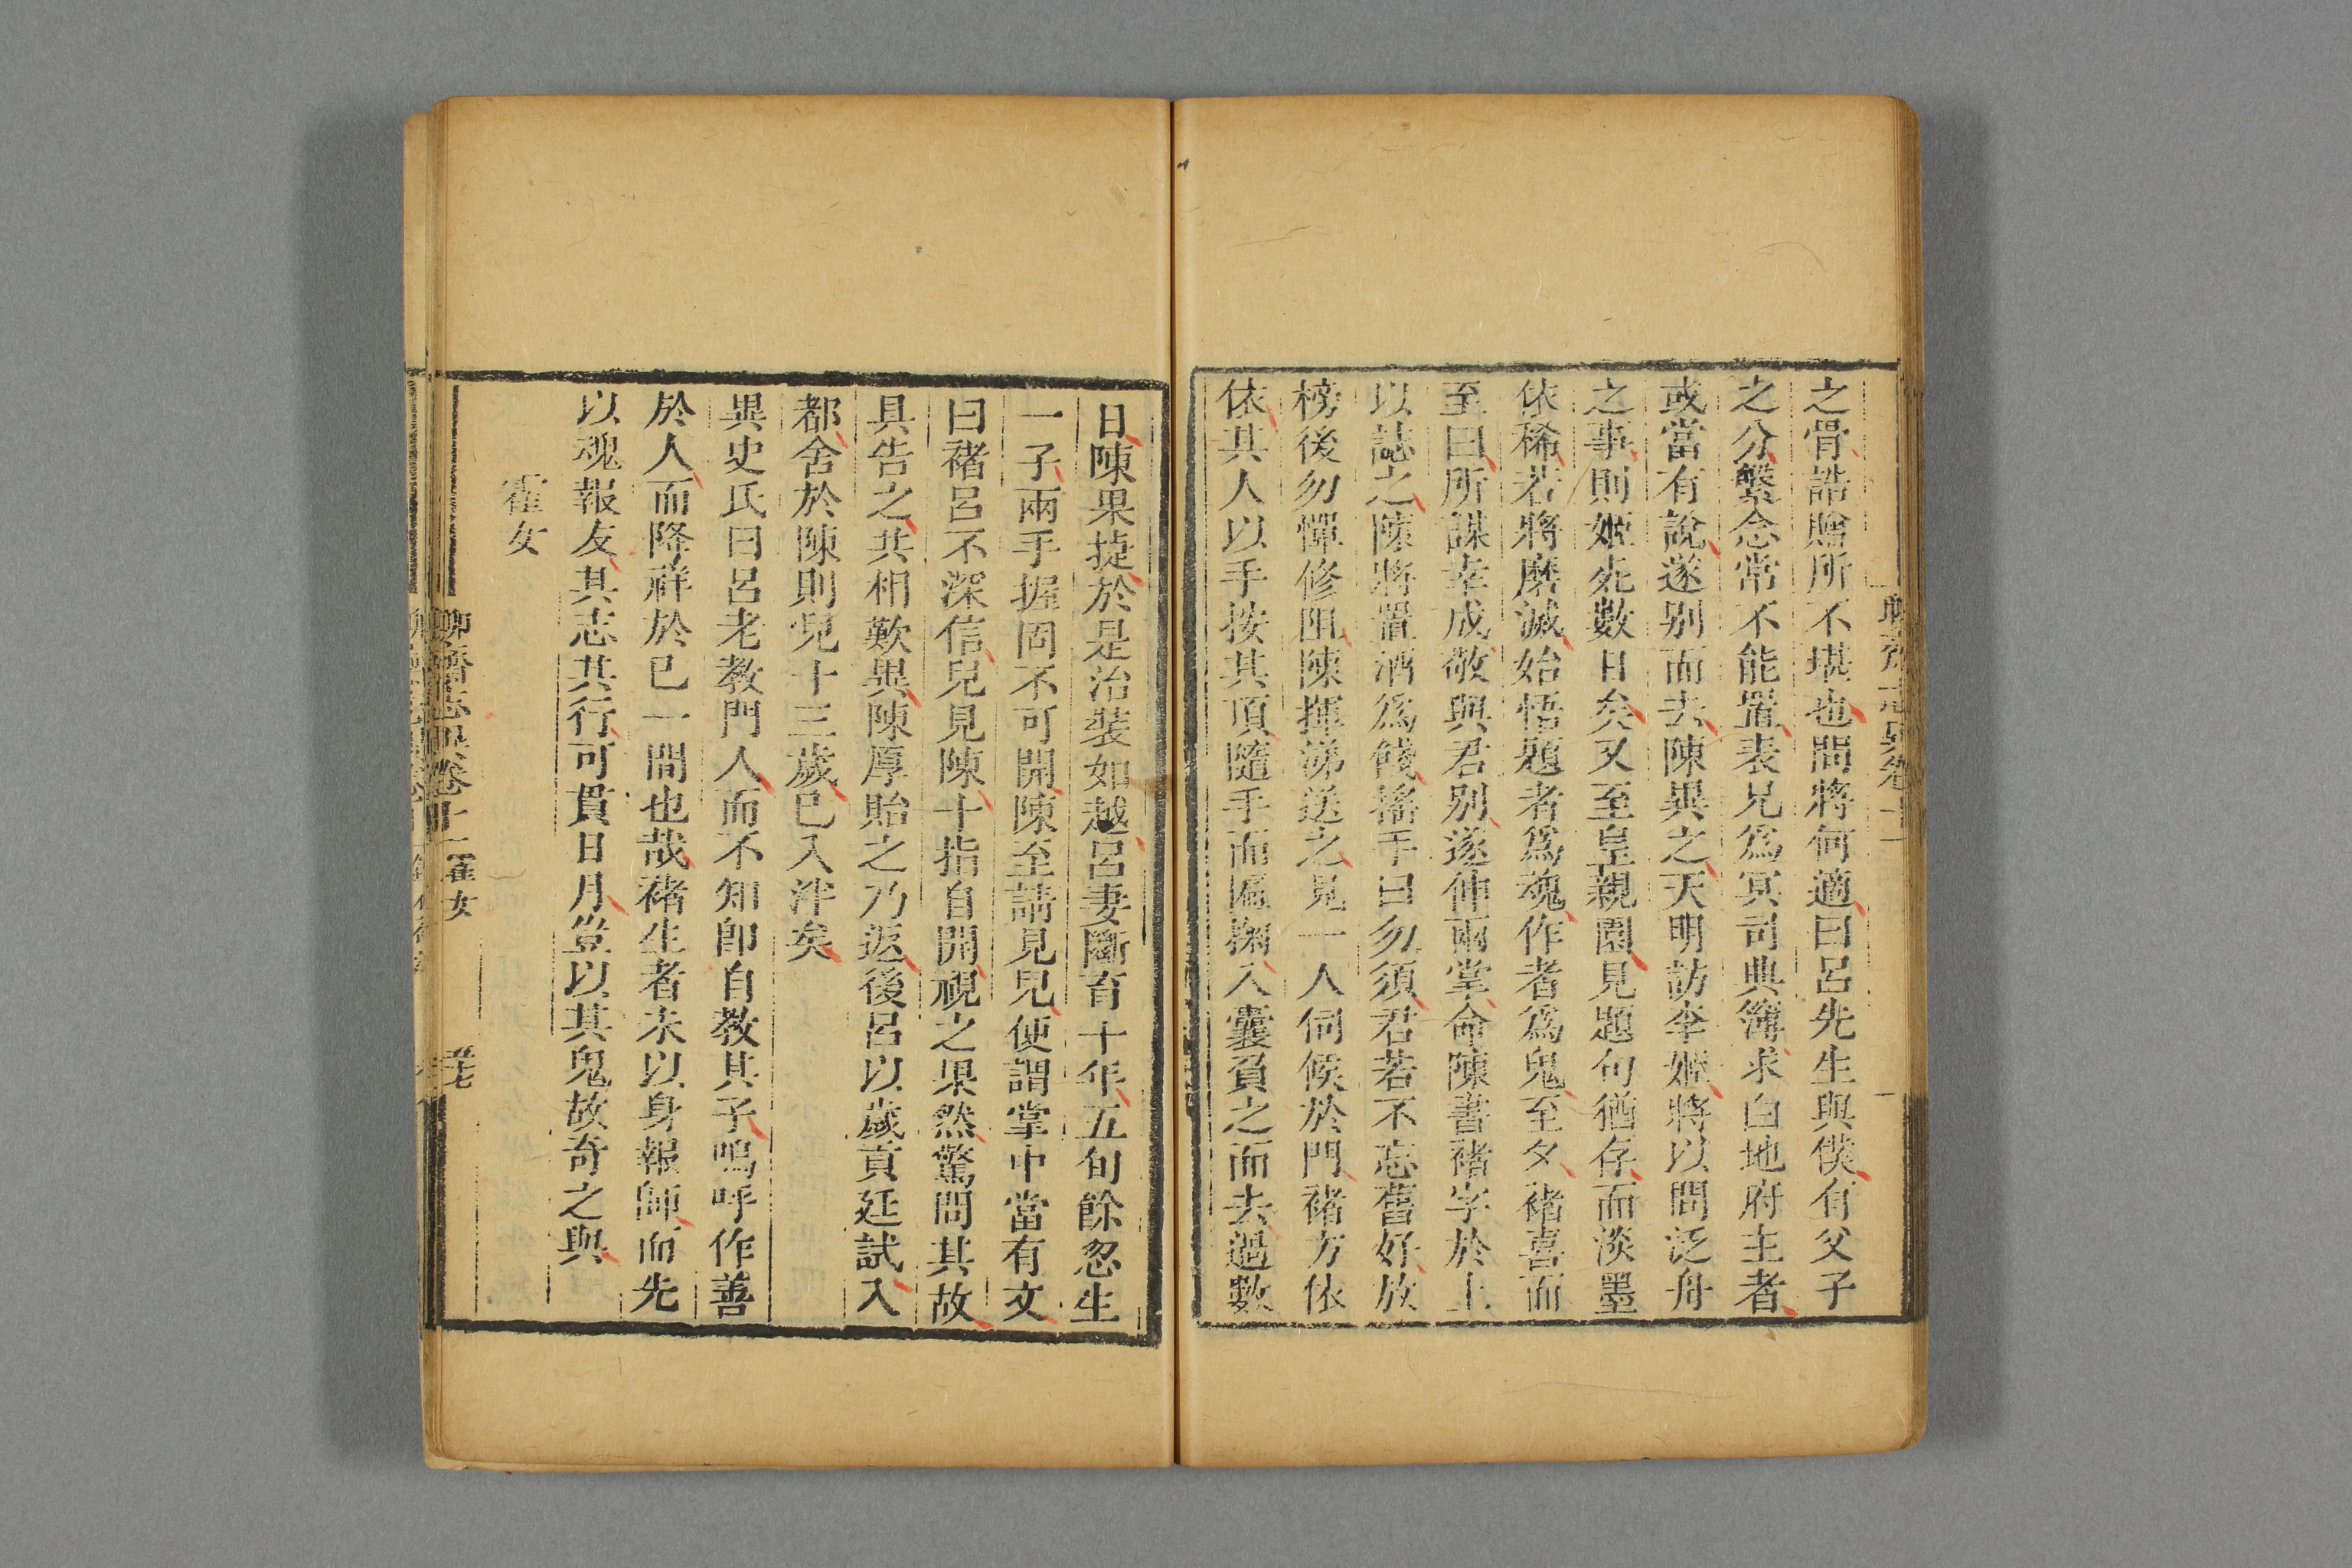 之骨誥贈所不堪也問將何適曰呂先生與僕有父子
之分繫念常不能置表兄爲冥司典簿求白地府主者
或當有說遂别而去陳異之天明訪李姬將以問泛舟
之事則姬死數日矣又至皇親園見題句猶存而淡墨
依稀若將磨滅始悟題者爲魂作者爲鬼至夕褚喜而
至曰所謀幸成敬與君别遂伸兩掌命陳書褚字於上
以誌之陳將置酒爲餞搖手曰勿須君若不忘舊好放
榜後勿憚修阻陳揮涕送之見一人伺候於門褚方依
依其人以手按其頂隨手而匾掬入囊負之而去過數
日陳果捷於是治裝如越呂妻斷育十年五旬餘忽生
一子兩手握固不可開陳至請見兒便謂掌中當有文
曰褚呂不深信兒見陳十指自開視之果然驚問其故
具告之共相歎異陳厚貽之乃返後呂以歲貢廷試入
都舍於陳則兒十三歲已入泮矣
異史氏曰呂老教門人而不知卽自教其子嗚呼作善
於人而降祥於已一間也哉褚生者未以身報師而先
以魂報友其志其行可貫日月豈以其鬼故奇之與
霍女
聊齋志異卷十一 霍女